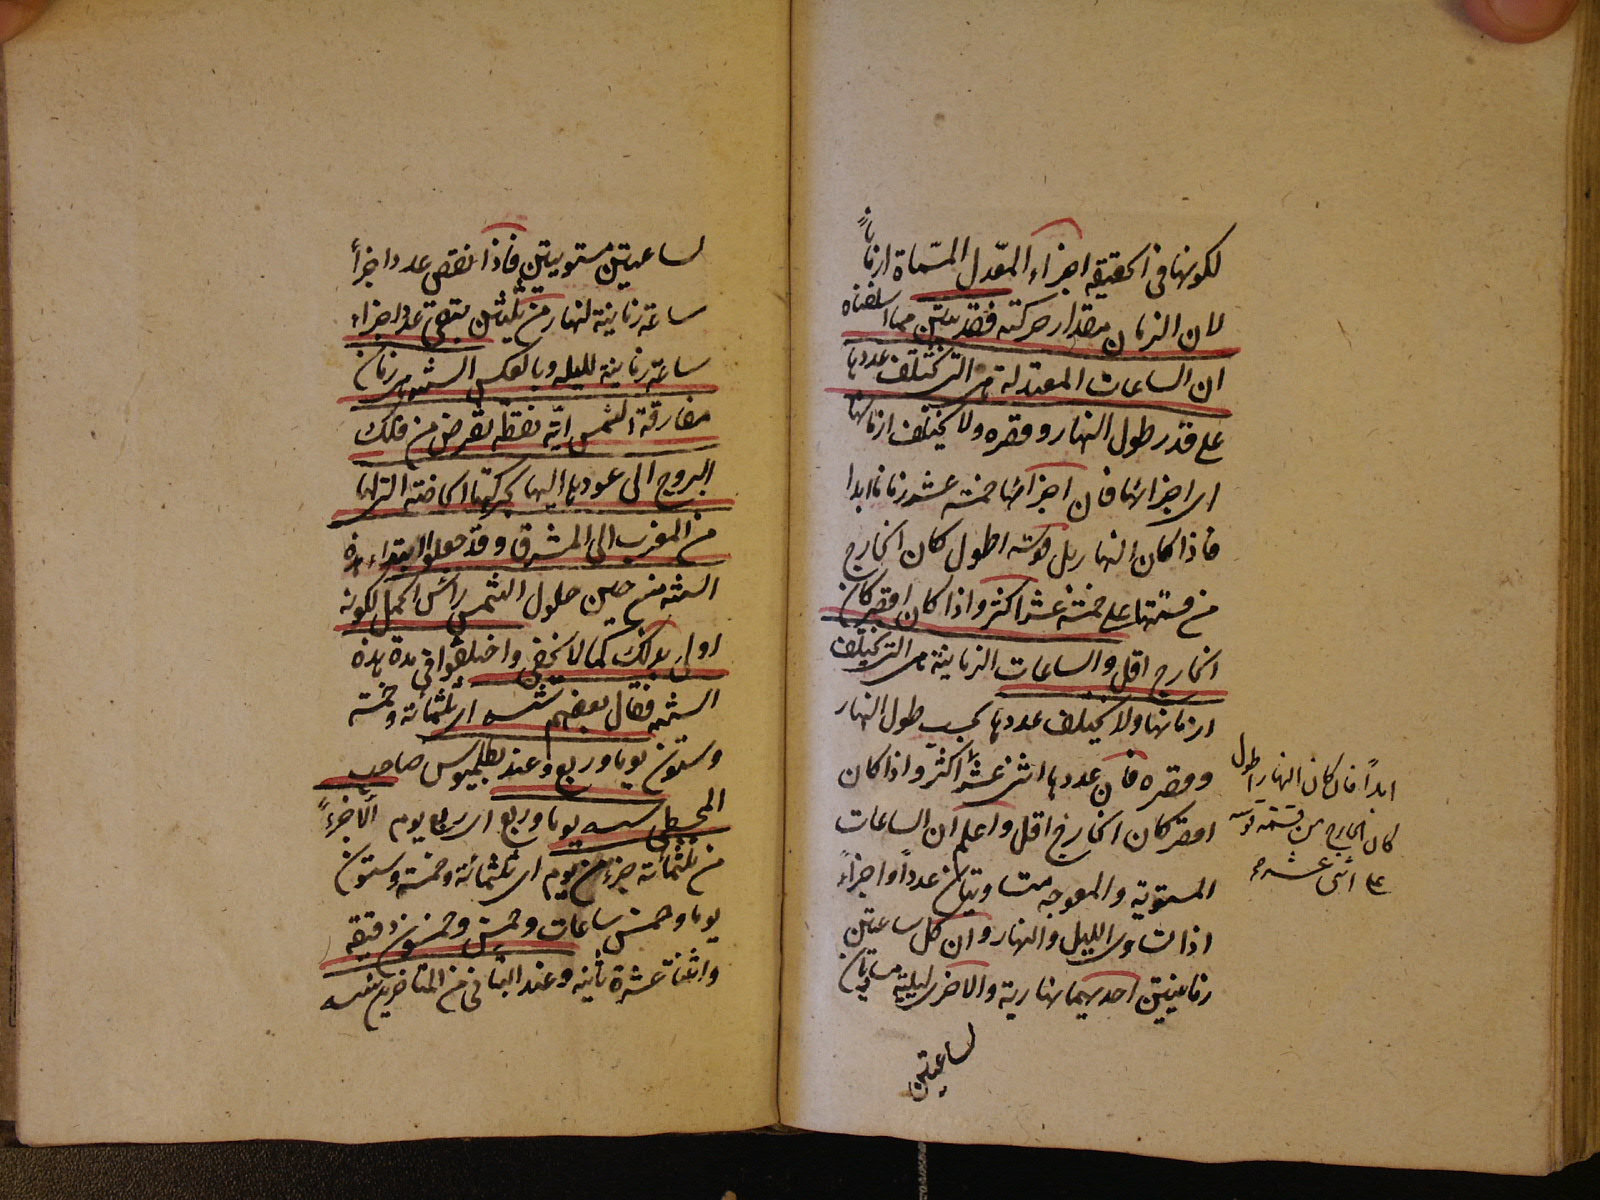 لكونها فى الحقيقه اجزاء المعدل المسماة ازمانا
لان الزمان مقدار حركته فقد تبين مما اسلفناه
ان الساعات المعتدلة هى التى تختلف عددها
على قدر طول النهار وقصره ولا يختلف ازمانها
اى اجزائها فان اجزائها خمسة عشر زمانا ابدا
فاذا كان النهار بل قوسه اطول كان الخارج
من قسمتها على خمسة عشر اكثر واذا كان اقصر كان
الخارج اقل والساعات الزمانية هى التى يختلف
ازمانها ولا يختلف عددها بحسب طول النهار
وقصره فان عددها اثنى عشر ابدا فان كان النهار اطول
كان الخارج من قسمة قوسه
على اثنى عشر
اكثر واذا كان
اقصر كان الخارج اقل واعلم ان الساعات
المستوية والمعوجه متساويتان عددا واجزاءً
اذا تساوى الليل والنهار وان كل ساعتين
زمانيتين احديهما نهارية والاخرى ليلية مساويتان
لساعتين
لساعتين مستويتين فاذا نقص عدد اجزأ
ساعة زمانية لنهار من ثلثين بقى عدد اجزاء
ساعة زمانية لليله وبالعكس السنة هى زمان
مفارقة الشمس ايّه نقطة تفرض من فلك
البروج الى عودها اليها بحركتها الخاصة التى لها
من المغرب الى المشرق وقد جعلوا ابتداء هذه
السنة من حين حلول الشمس رأس الحمل لكونه
اولى بذلك كما لا يخفى واختلفوا فى مدة هذه
السنة فقال بعضهم شسه اى ثلثمائة وخمسة
وستون يوما وربع وعند بطلميوس صاحب
المجسطى شسه يوما وربع اى ربع يوم الّا جزءً
من ثلثمائة جزء من يوم اى ثلثمائة وخمسة وستون
يوما وخمس ساعات وخمس وخمسون دقيقة
واثنتا عشرة ثانية وعند البتانى من المتأخرين شسه